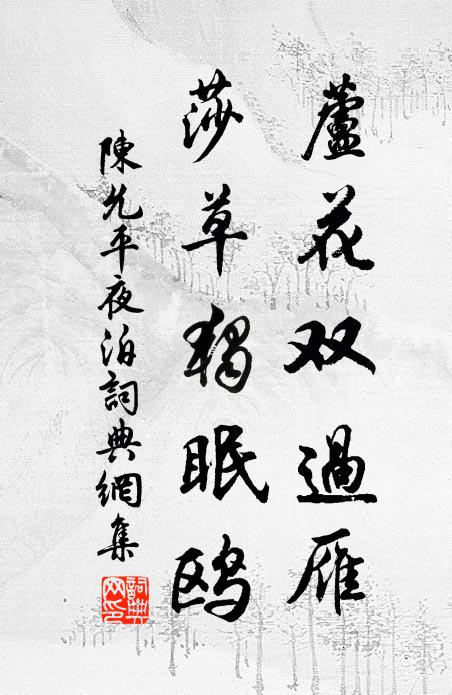 蘆花双過雁
莎草獨眠鸥
陳允平夜泊詞典網集
詞典网印